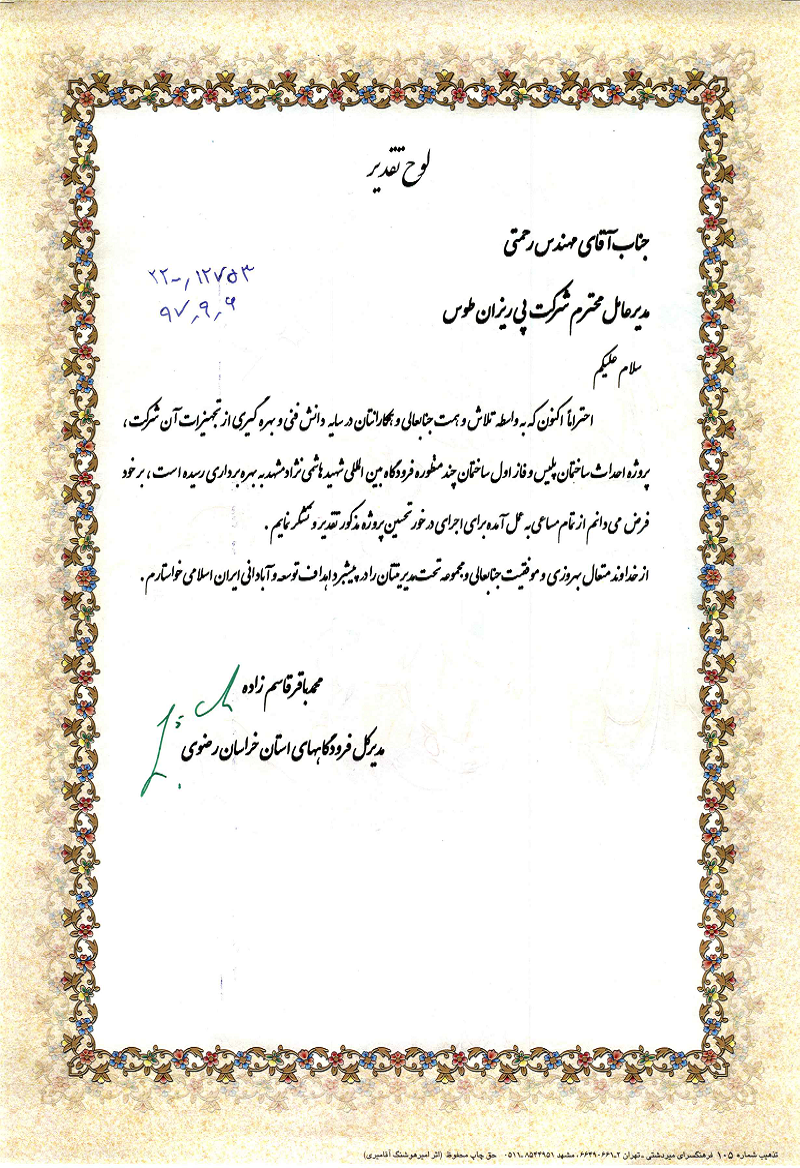 لوح تقدیر
جناب آقای مهندس رحمتی
۲۲۰۰,۱۲۷۵۳
مدیرعامل محترم شرکت پی ریزان طوس
۹۷,۹,۶
سلام علیکم
احتراماً اکنون که به واسطه تلاش و همت جنابعالی و همکارانتان در سایه دانش فنی و بهره گیری از تجهیزات آن شرکت ،
پروژه احداث ساختمان پلیس و فاز اول ساختمان چند منظوره فرودگاه بین المللی شهید هاشمی نژاد مشهد به بهره برداری رسیده است ، بر خود
فرض می دانم از تمام مساعی به عمل آمده برای اجرای در خور تحسین پروژه مذکور تقدیر و تشکر نمایم .
از خداوند متعال بهروزی و موفقیت جنابعالی و مجموعه تحت مدیریتتان را در پیشبرد اهداف توسعه و آبادانی ایران اسلامی خواستارم .
محمدباقر قاسم زاده
مدیرکل فرودگاههای استان خراسان رضوی
تذهیب شماره ۱۰۵ فرهنگسرای میردشتی ـ تهران ۲ـ۶۶۴۹۰۶۶۱ ، مشهد ۸۵۴۴۹۵۱ـ۰۵۱۱ حق چاپ محفوظ (اثر امیرهوشنگ آقامیری)